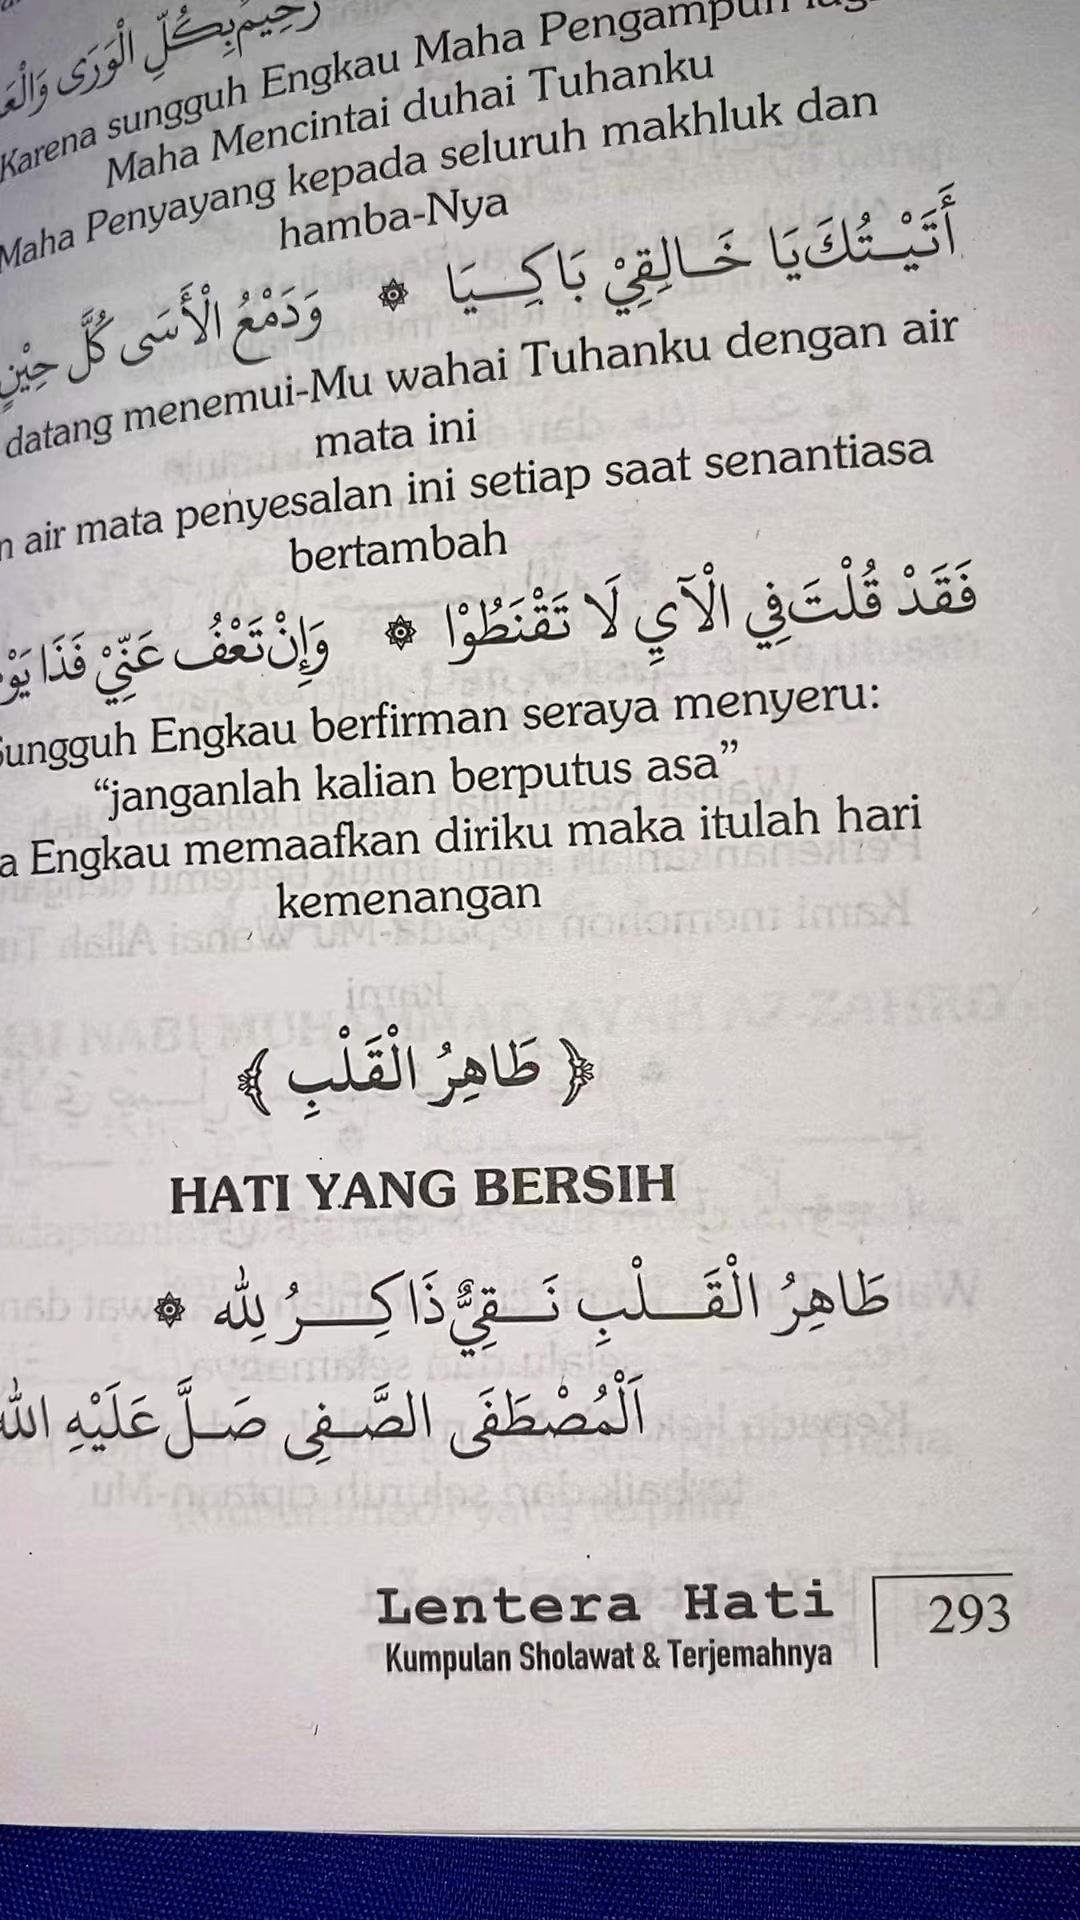 رَحِيمٌ بِكُلِّ الْوَرَى
Karena sungguh Engkau Maha Pengampun
Maha Mencintai duhai Tuhanku
Maha Penyayang kepada seluruh makhluk dan
hamba-Nya
أَتَيْتُكَ يَا خَالِقِيْ بَاكِيَا ۞ وَدَمْعُ الْأَسَى كُلَّ حِيْنٍ
datang menemui-Mu wahai Tuhanku dengan air
mata ini
air mata penyesalan ini setiap saat senantiasa
bertambah
فَقَدْ قُلْتَ فِي الْآيِ لَا تَقْنَطُوْا ۞ وَإِنْ تَعْفُ عَنِّيْ فَذَا
Sungguh Engkau berfirman seraya menyeru:
“janganlah kalian berputus asa”
Engkau memaafkan diriku maka itulah hari
kemenangan
﴿ طَاهِرُ الْقَلْبِ ﴾
HATI YANG BERSIH
طَاهِرُ الْقَلْبِ نَقِيٌّ ذَاكِرُ لِلّٰه ۞
اَلْمُصْطَفَى الصَّفِى صَلَّ عَلَيْهِ اللّٰه
Lentera Hati
Kumpulan Sholawat & Terjemahnya
293